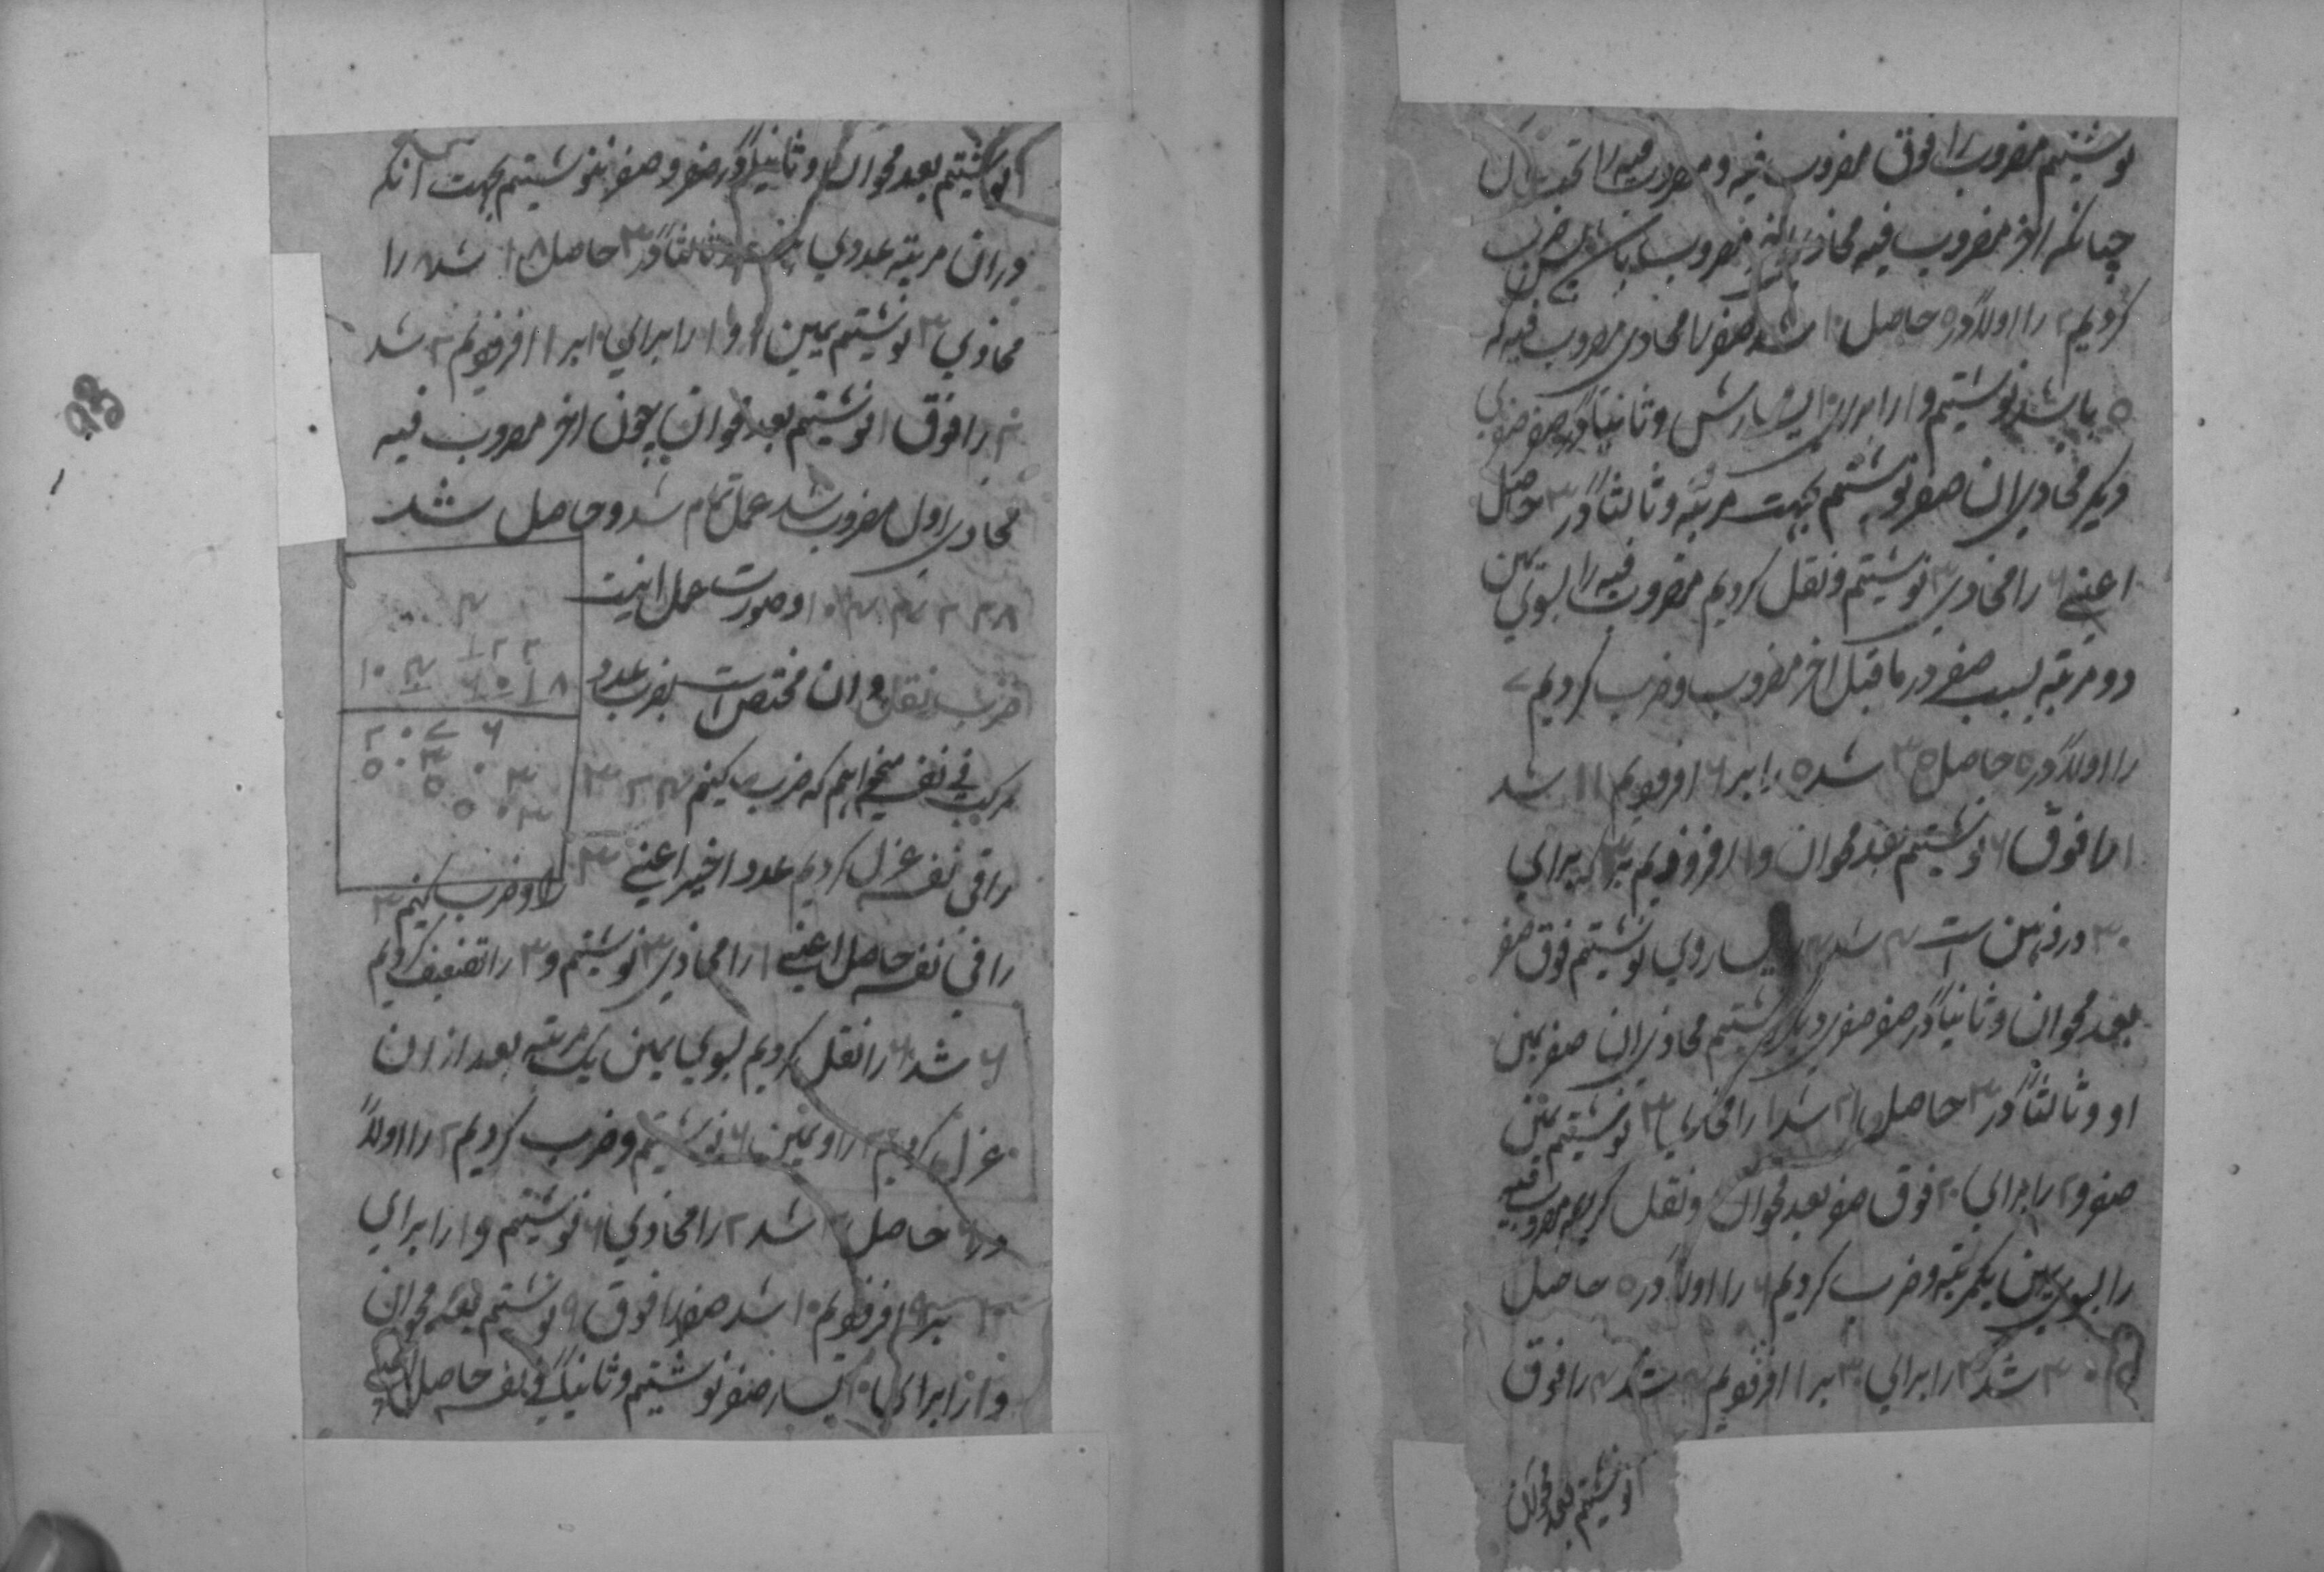 نوشتیم مضروب را فوق مضروب فیه و مضروب فیه را تحت آن
چنانکه اخر مضروب فیه محاذی اخر مضروب باشد پس ضرب
کردیم ۲ را اولا در ۵ حاصل ۱۰ شد صفر را محاذی مضروب فیه که
۵ باشد نوشتیم و ۱ را برای ۱۰ یسارش و ثانیا در صفر صفری
دیگر محاذی ان صفر نوشتیم بجهت مرتبه و ثالثا در ۳ حاصل
اعنی ۶ را محاذی ۳ نوشتیم و نقل کردیم مضروب فیه را بسوی یمین
دو مرتبه بسبب صفر در ماقبل اخر مضروب و ضرب کردیم ۷
را اولا در ۵ حاصل ۳۵ شد ۵ را بر ۶ افزودیم ۱۱ شد
۱ را فوق ۶ نوشتیم بعد محو ان و ۱ افزودیم بر ۳ که برای
۳۰ در ذهن است ۴ شد ۴ یساروی نوشتیم فوق صفر
بعد محو ان و ثانیا در صفر صفری دیگر نوشتیم محاذی ان صفر یمین
او و ثالثا در ۳ حاصل ۲۱ شد ۱ را محاذی ۳ نوشتیم یمین
صفر و ۲ را برای ۲۰ فوق صفر بعد محو ان و نقل کردیم مضروب فیه
را بسوی یمین یکمرتبه و ضرب کردیم ۶ را اولا در ۵ حاصل
۳۰ شد ۳ را برای ۳۰ بر ۱ افزودیم ۴ شد ۴ را فوق
۱ نوشتیم بعد محو ان
نوشتیم بعد محو ان و ثانیا در صفر و صفر ننوشتیم بجهت انکه
دران مرتبه عددی و ثالثا در ۳ حاصل ۱۸ شد ۸ را
محاذی ۳ نوشتیم یمین و ۱ را برای ۱۰ بر ۱ افزودیم ۲ شد
۲ را فوق ۱ نوشتیم بعد محو ان چون اخر مضروب فیه
محاذی اول مضروب شد عمل تمام شد و حاصل شد
و صورت عمل اینست
ضرب نقلی و ان مختص است بضرب عدد
مرکب فی نفسه میخواهیم که ضرب کنیم
را فی نفسه عزل کردیم عدد اخیر اعنی ۳ را و ضرب کنیم ۳
را فی نفسه حاصل اعنی ۹ را محاذی ۳ نوشتیم و ۳ را تضعیف کردیم
۶ شد ۶ را نقل کردیم بسوی یمین یک مرتبه بعد از ان
عزل کردیم ۲ را و یمین ۶ نوشتیم و ضرب کردیم ۲ را اولا
در ۶ حاصل ۱۲ شد ۲ را محاذی ۶ نوشتیم و ۱ را برای
۱۰ بر ۹ افزودیم ۱۰ شد صفر را فوق ۹ نوشتیم بعد محو ان
و ۱ را برای ۱۰ یسار صفر نوشتیم و ثانیا فی نفسه حاصل اعنی